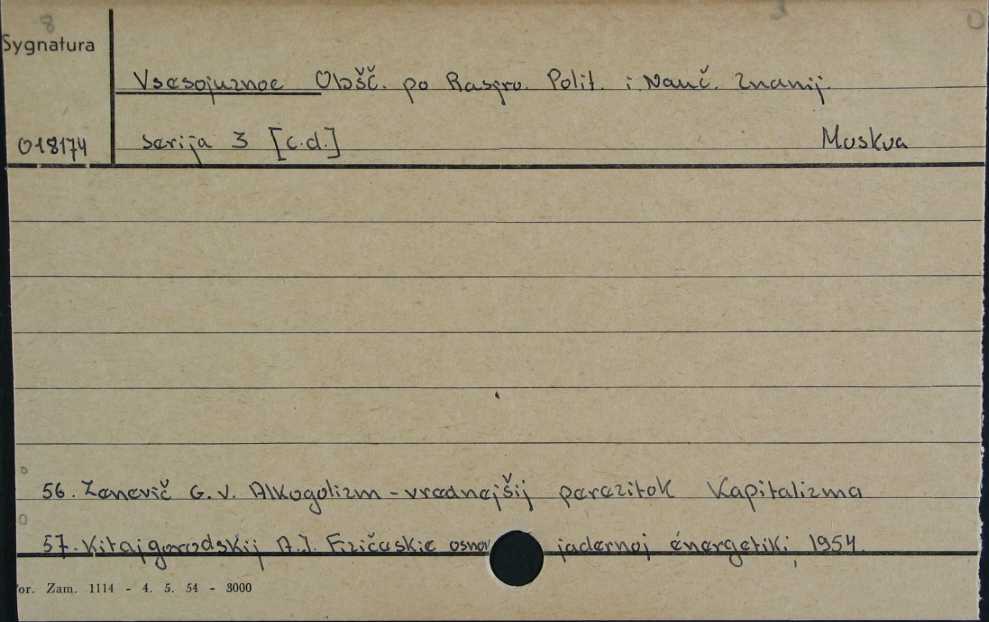 8
Sygnatura
Vsesojuznoe Obšč. po Raspro. Polit. i Nauč. Znanij.
018174 serija 3 [c.d.] Moskva
56. Zenevič G. V. Alkogolizm - vrednejšij perezitok kapitalizma
57. Kitajgorodskij A. I. Fizičeskie osnov jadernoj énergetiki, 1954.
or. Zam. 1114 - 4. 5. 54 - 3000